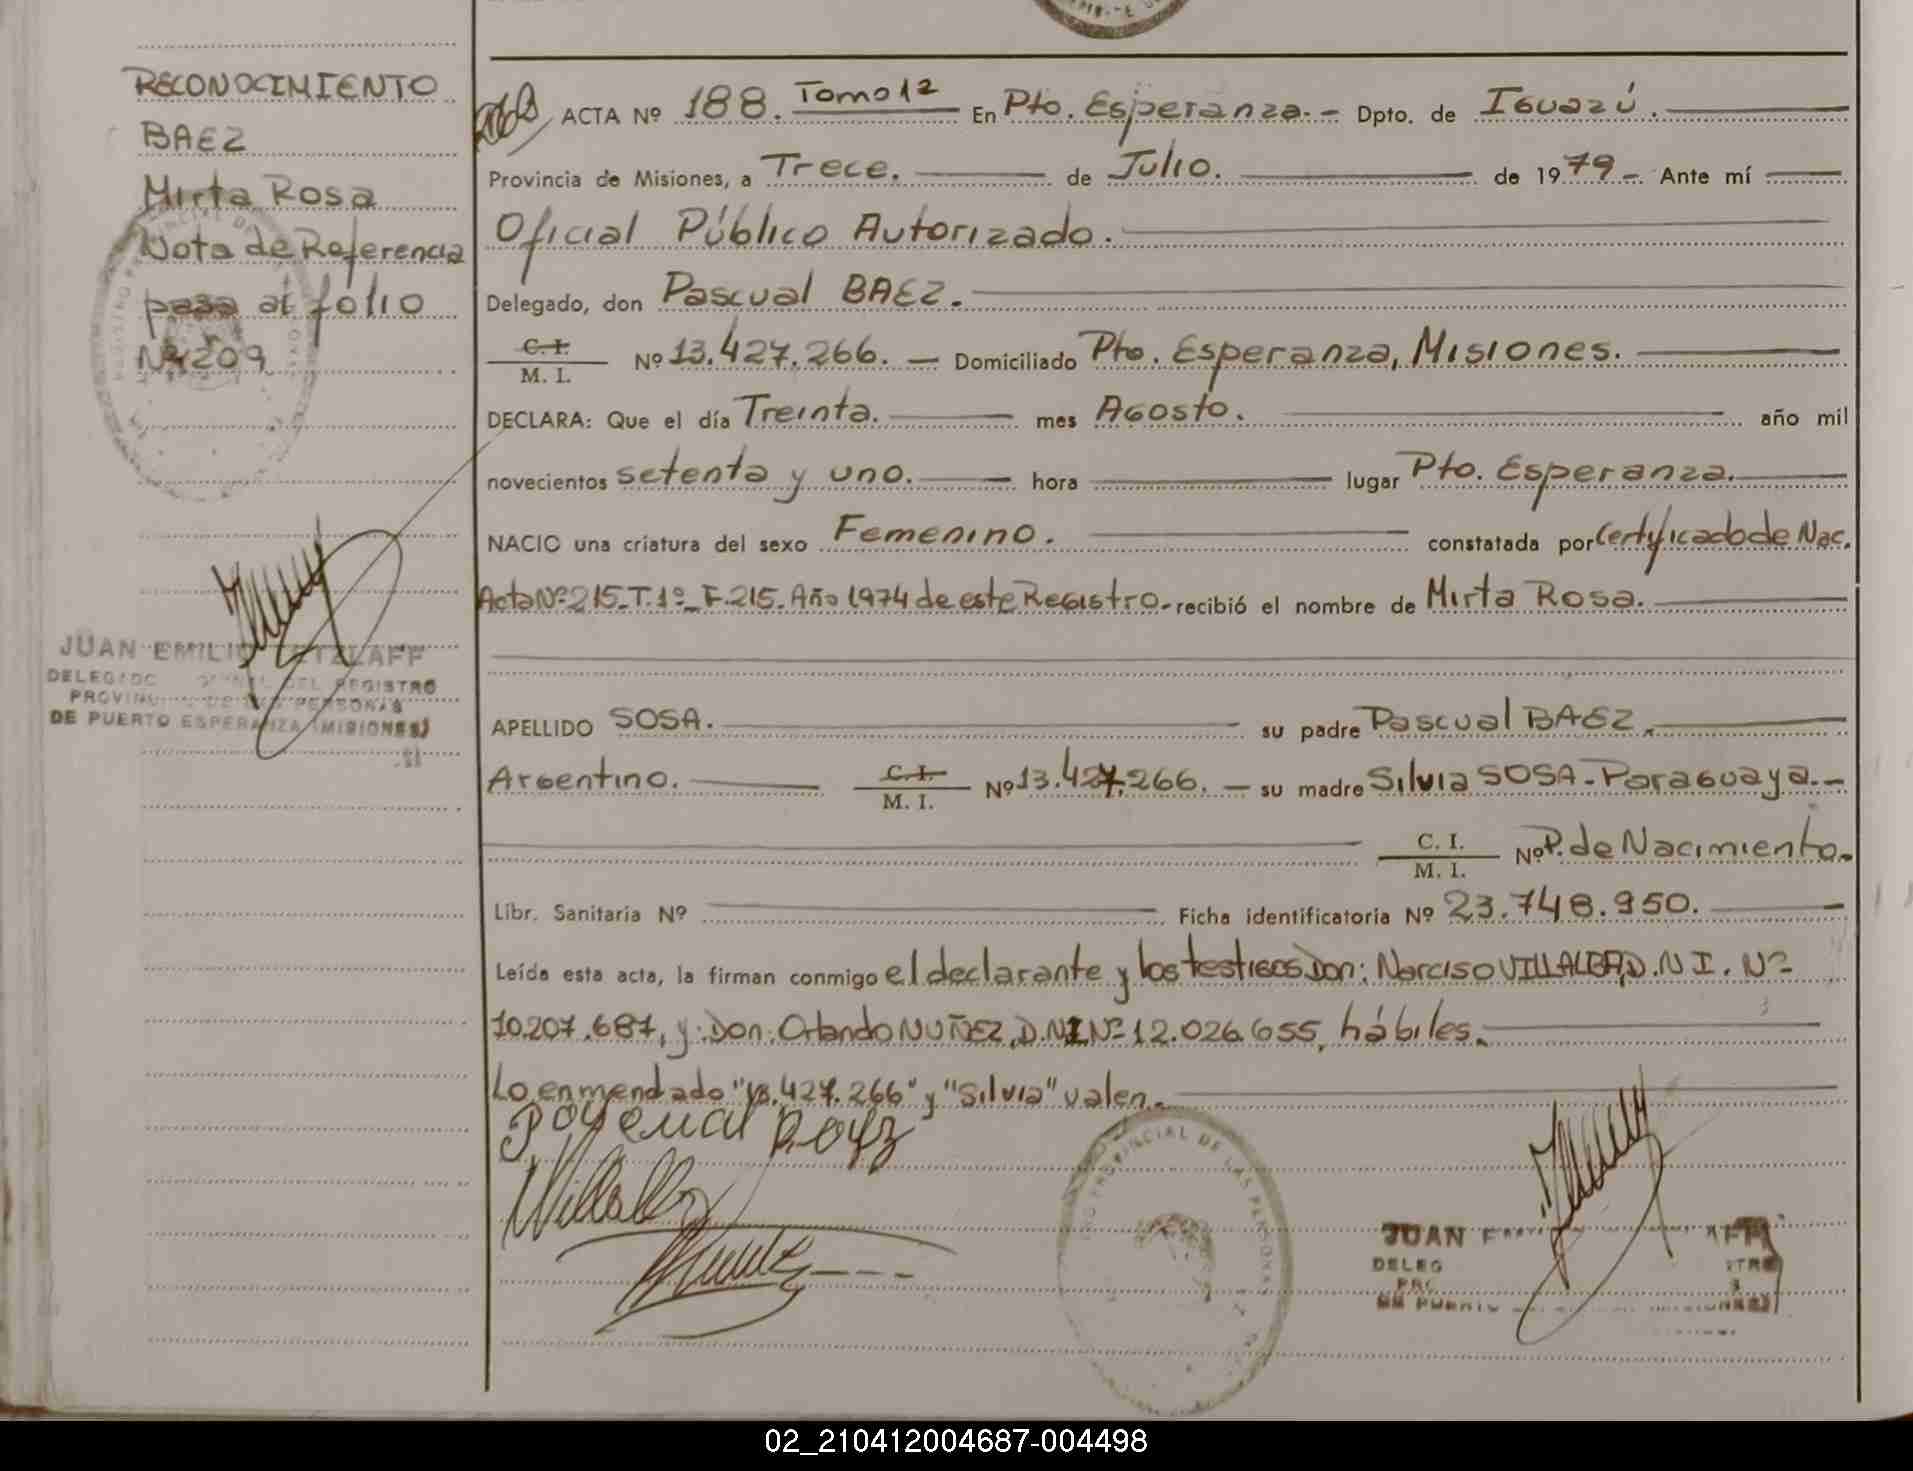 RECONOCIMIENTO
BAEZ
Mirta Rosa
Nota de Referencia
pasa al folio
Nº209
JUAN EMILIO
DEL REGISTRO
DE PUERTO ESPERANZA (MISIONES)
ACTA Nº 188. Tomo 12 En Pto. Esperanza.- Dpto. de Iguazú.
Provincia de Misiones, a Trece. de Julio. de 1979-. Ante mí
Oficial Público Autorizado.
Delegado, don Pascual BAEZ.
C. I.
M. I. Nº 13.427.266. — Domiciliado Pto. Esperanza, Misiones.
DECLARA: Que el día Treinta. mes Agosto. año mil
novecientos setenta y uno. hora lugar Pto. Esperanza.
NACIO una criatura del sexo Femenino. constatada por Certificado de Nac.
Acta Nº 215-T.1º-F.215. Año 1974 de este Registro.- recibió el nombre de Mirta Rosa.
APELLIDO SOSA. su padre Pascual BAEZ.
Argentino. C. I.
M. I. Nº 13.427.266. — su madre Silvia SOSA-Paraguaya.-
C. I.
M. I. Nº P. de Nacimiento.
Libr. Sanitaria Nº Ficha identificatoria Nº 23.748.950.
Leída esta acta, la firman conmigo el declarante y los testigos Don: Narciso VILLALBA, D.N I. Nº
10.207.687, y: Don: Orlando NUÑEZ, D.NI Nº 12.026.655, hábiles.
Lo enmendado "13.427.266" y "Silvia" valen.
PROVINCIAL DE LAS PERSONAS
JUAN
DELEG
02_210412004687-004498